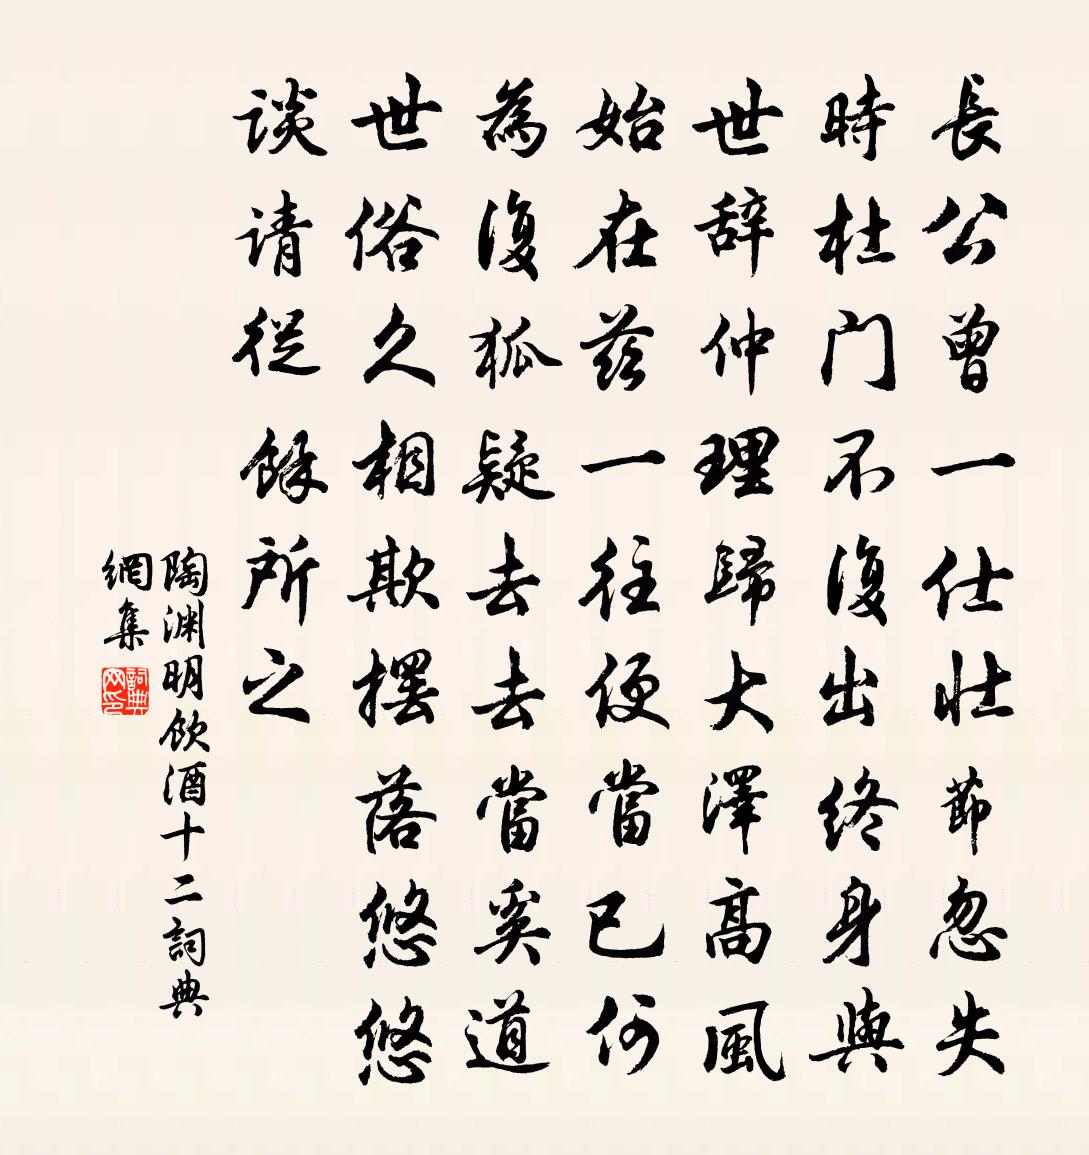 長公曾一仕壯節忽失
時杜门不復出終身與
世辞仲理歸大澤高風
始在兹一往便當已何
為復狐疑去去當奚道
世俗久相欺擺落悠悠
谈请從餘所之
陶渊明飲酒十二詞典
網集
詞典网印